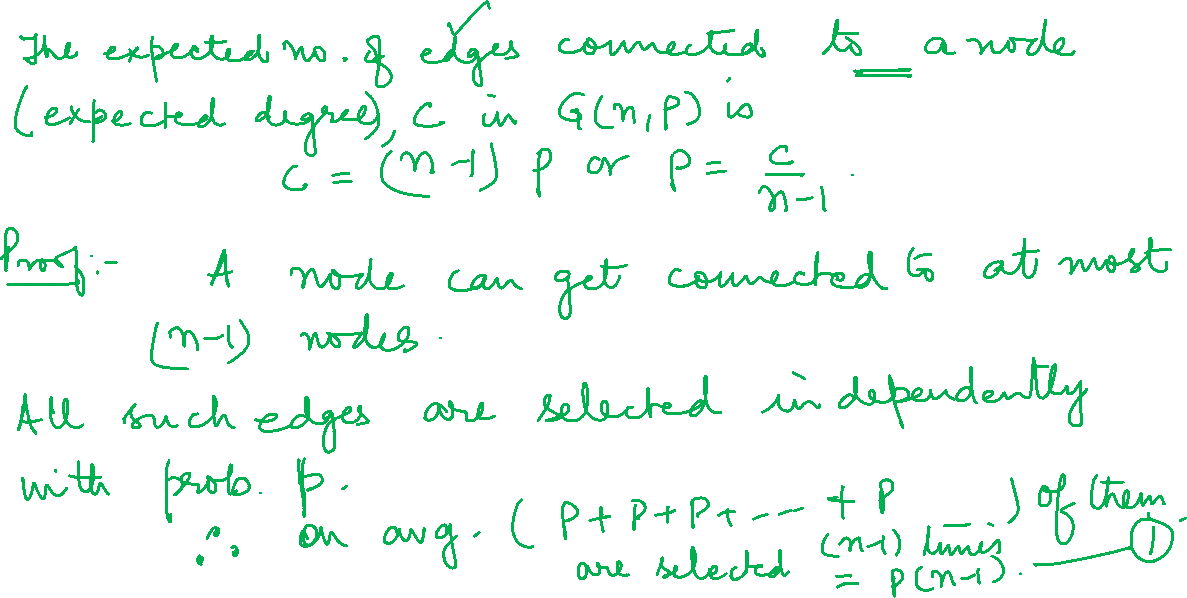 The expected no. of edges connected to a node
(expected degree), c in G(n,p) is
c = (n-1) p or p = c/(n-1).
Proof:- A node can get connected to at most
(n-1) nodes.
All such edges are selected independently
with prob. p.
∴ on avg. (p+p+p+--- +p (n-1) times) of them
are selected = p(n-1). ①